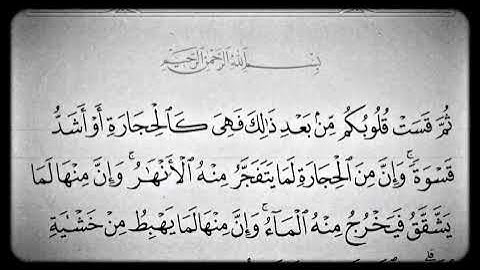 بِسْمِ ٱللَّهِ ٱلرَّحْمَٰنِ ٱلرَّحِيمِ
ثُمَّ قَسَتْ قُلُوبُكُم مِّنۢ بَعْدِ ذَٰلِكَ فَهِىَ كَٱلْحِجَارَةِ أَوْ أَشَدُّ
قَسْوَةً ۚ وَإِنَّ مِنَ ٱلْحِجَارَةِ لَمَا يَتَفَجَّرُ مِنْهُ ٱلْأَنْهَٰرُ ۚ وَإِنَّ مِنْهَا لَمَا
يَشَّقَّقُ فَيَخْرُجُ مِنْهُ ٱلْمَآءُ ۚ وَإِنَّ مِنْهَا لَمَا يَهْبِطُ مِنْ خَشْيَةِ